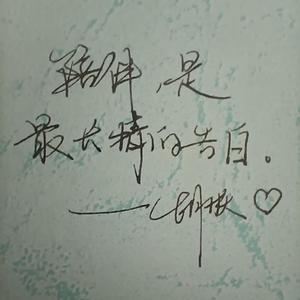 陪伴,是
最长情的告白。
——